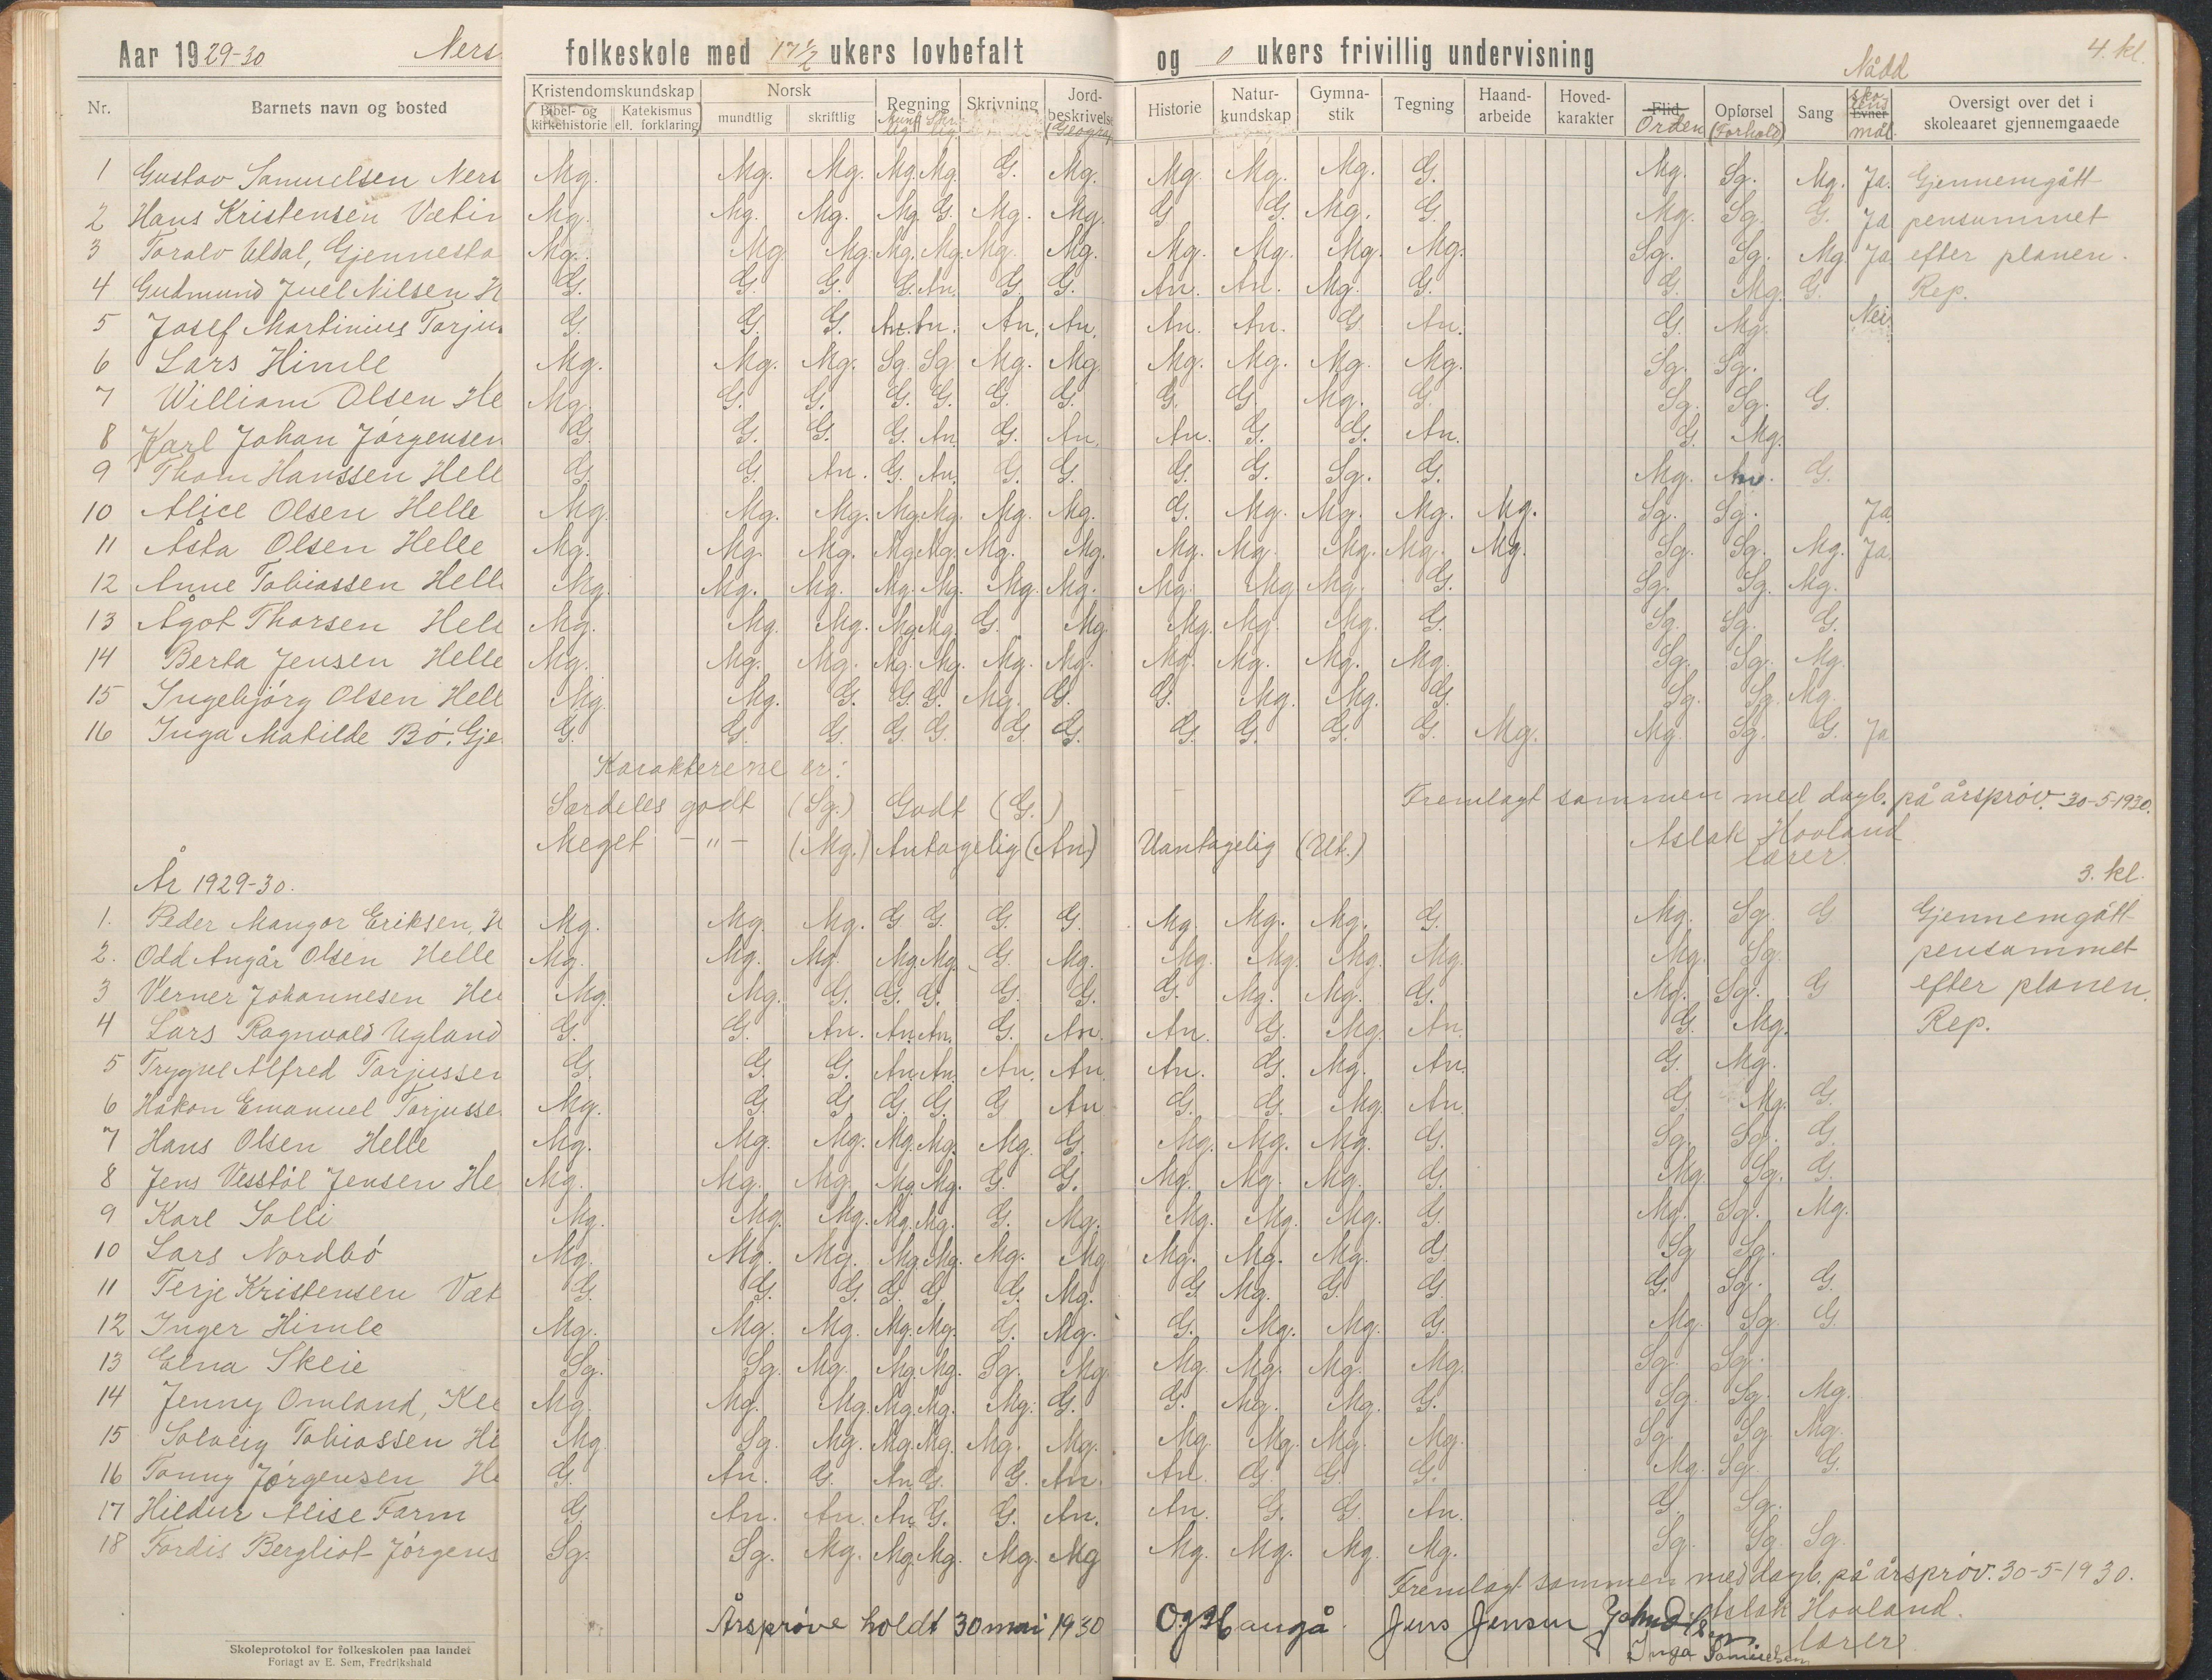 Aar 1929-30 Ners folkeskole med 17 1/2 ukers lovbefalt og 0 ukers frivillig undervisning 4. kl.
Nr. Barnets navn og bosted Kristendomskundskap Norsk Regning Skrivning Jord-beskrivelse (Geogra Historie Natur-kundskap Gymna-stik Tegning Haand-arbeide Hoved-karakter Flid Orden Opførsel (Forhold) Sang Evner Nådd skolens mål Oversigt over det i skoleaaret gjennemgaaede
Bibel- og kirkehistorie Katekismus ell. forklaring mundtlig skriftlig
1 Gustav Samuelsen Ners Mg. Mg. Mg. Mg. Mg. G. Mg. Mg. Mg. Mg. G. Mg. Sg. Mg. Ja. Gjennemgått
2 Hans Kristensen Vætin Mg. Mg. Mg. Mg. G. Mg. Mg. G G. Mg. G. Mg. Sg. G. Ja pensummet
3 Toralv Uldal, Gjennesta Mg. Mg. Mg. Mg. Mg. Mg. Mg. Mg. Mg. Mg. Mg. Sg. Sg. Mg. Ja. efter planen.
4 Gudmund Juel Nilsen H G. G. G. G. An. G. G. An. An. Mg. G. G. Mg. G. Rep.
5 Josef Martinius Torjus G. G. G. An. An. An. An. An. An. G. An. G. Mg. Nei.
6 Lars Himle Mg. Mg. Mg. Sg. Sg. Mg. Mg. Mg. Mg. Mg. Mg. Sg. Sg.
7 William Olsen He Mg. G. G. G. G. G. G. G. G. Mg. G. Sg. Sg. G.
8 Karl Johan Jørgensen G. G. G. G. An. G. An. An. G. G. An. G. Mg.
9 Thom Hanssen Hell G. G. An. G. An. G. G. G. G. Sg. G. Mg. An. G.
10 Alice Olsen Helle Mg. Mg. Mg. Mg. Mg. Mg. Mg. G. Mg. Mg. Mg. Mg. Sg. Sg. Ja.
11 Asta Olsen Helle Mg. Mg. Mg. Mg. Mg. Mg. Mg. Mg. Mg. Mg. Mg. Mg. Sg. Sg. Mg. Ja.
12 Anne Tobiassen Hell Mg. Mg. Mg. Mg. Mg. Mg. Mg. Mg. Mg. Mg. G. Sg. Sg. Mg.
13 Ågot Thorsen Hell Mg. Mg. Mg. Mg. Mg. G. Mg. Mg. Mg. Mg. G. Sg. Sg. G.
14 Berta Jensen Helle Mg. Mg. Mg. Mg. Mg. Mg. Mg. Mg. Mg. Mg. Mg. Sg. Sg. Mg.
15 Ingebjørg Olsen Hell Mg. Mg. G. G. G. Mg. G. G. Mg. Mg. G. Sg. Sg. Mg.
16 Inga Matilde Bø. Gje G. G. G. G. G. G. G. G. G. G. G. Mg. Mg. Sg. G. Ja
Karakterene er:
Særdeles godt (Sg.) Godt (G.) Fremlagt sammen med dagb. på årsprøv. 30-5-1930.
Meget -"- (Mg.) Antagelig (An.) Uantagelig (Ut.) Aslak Hovland
lærer.
År 1929-30. 3. kl.
1. Peder Mangor Eriksen, H Mg. Mg. Mg. G G. G. G. Mg. Mg. Mg. G. Mg. Sg. G Gjennemgått
2. Odd Angår Olsen Helle Mg. Mg. Mg. Mg. Mg. G. Mg. Mg. Mg. Mg. Mg. Mg. Sg. pensummet
3 Verner Johannesen He Mg. Mg. G. G. G. G. G. G. Mg. Mg. G. Mg. Sg. G efter planen.
4 Lars Ragnvald Ugland G. G. An. An. An. G. An. An. G. Mg. An. G. Mg. Rep.
5 Trygve Alfred Torjussen G. G. G. An. An. An. An. An. G. Mg. An. G. Mg.
6 Håkon Emanuel Torjusse Mg. G. G. G. G. G An G. G. Mg. An. G. Mg. G.
7 Hans Olsen Helle Mg. Mg. Mg. Mg. Mg. Mg. G. Mg. Mg. Mg. G. Sg. Sg. G.
8 Jens Vesstøl Jensen He Mg. Mg. Mg. Mg. Mg. G. G. Mg. Mg. Mg. G. Mg. Sg. G.
9 Karl Solli Mg. Mg. Mg. Mg. Mg. G. Mg. Mg. Mg. Mg. G. Mg. Sg. Mg.
10 Lars Nordbø Mg. Mg. Mg. Mg. Mg. Mg. Mg. Mg. Mg. Mg. G. Sg. Sg.
11 Terje Kristensen Væt G. G. G. G. G. G. Mg. G Mg. G G. G. Sg. G.
12 Inger Himle Mg. Mg. Mg. Mg. Mg. G. Mg. G. Mg. Mg. G. Mg. Sg. G.
13 Elna Skeie Sg. Sg. Mg. Mg. Mg. Sg. Mg. Mg. Mg. Mg. Mg. Sg. Sg.
14 Jenny Omland, Kle Mg. Mg. Mg. Mg. Mg. Mg. G. G. Mg. Mg. G. Sg. Sg. Mg.
15 Solveig Tobiassen H Mg. Sg. Mg. Mg. Mg. Mg. Mg. Mg. Mg. Mg. Mg. Sg. Sg. Mg.
16 Tonny Jørgensen He G. An. G. An. G. G. An. An. G. G. G. Mg. Sg. G.
17 Hildur Alise Farm G. An. An. An. G. G. An. An. G. G. An. G. Sg.
18 Tordis Bergliot Jørgens Sg. Sg. Mg. Mg. Mg. Mg. Mg Mg. Mg. Mg. Mg. Sg. Sg. Sg.
Fremlagt sammen med dagb. på årsprøv. 30-5-1930.
Årsprøve holdt 30 mai 1930 Haugå. Jens Jensen Aslak Hovland.
Inga Samuelsen lærer
Skoleprotokol for folkeskolen paa landet
Forlagt av E. Sem, Fredrikshald